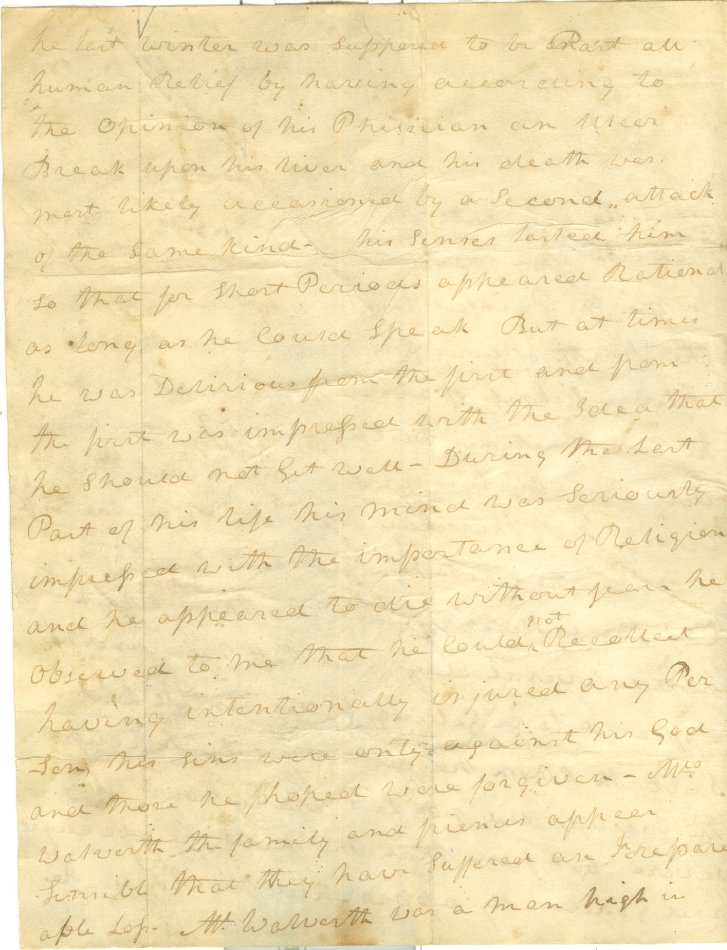 he last winter was supposed to be Past all
human Relief by having according to
the Opinion of his Phisician an Ulcer
Break upon his liver and his death was
most likely occasioned by a Second attack
of the Same kind - his Senses lasted him
So that for Short Periods appeared Rational
as long as he Could Speak But at times
he was Delirious from the first and from
the first was impressed with the Idea that
he Should not Get well - During the Last
Part of his life his mind was Seriously
impressed with the importance of Religion
and he appeared to die without fear he
Observed to me that he Could not Recollect
having intentionally injured any Per
Son, his Sins were only against his God
and those he hoped were forgiven - Mrs
Walworth the family and friends appear
Sensible that they have Suffered an Irepare
able Loss - Mr. Walworth was a man high in